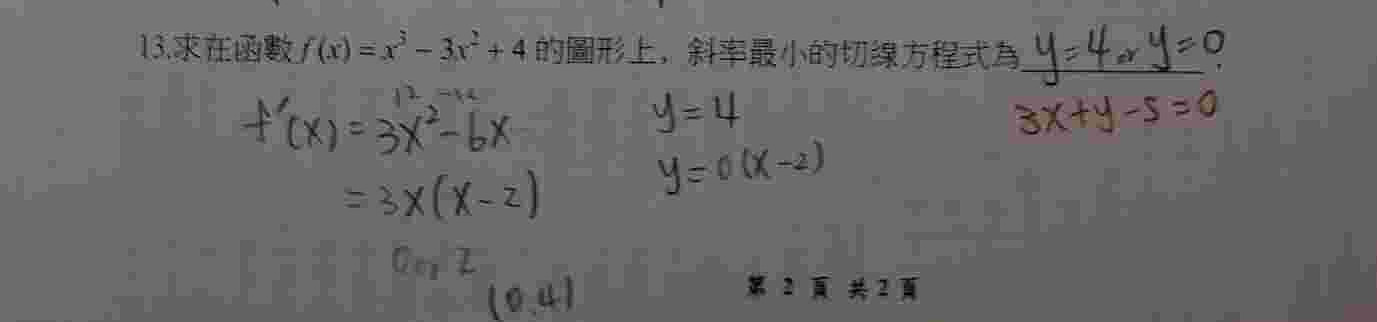 13.求在函數 f(x) = x³ − 3x² + 4 的圖形上，斜率最小的切線方程式為 y=4 or y=0.
3x+y-5=0
f'(x) = 3x²-6x
= 3x(x-2)
0 or 2
(0,4)
y=4
y=0(x-2)
第 2 頁 共 2 頁